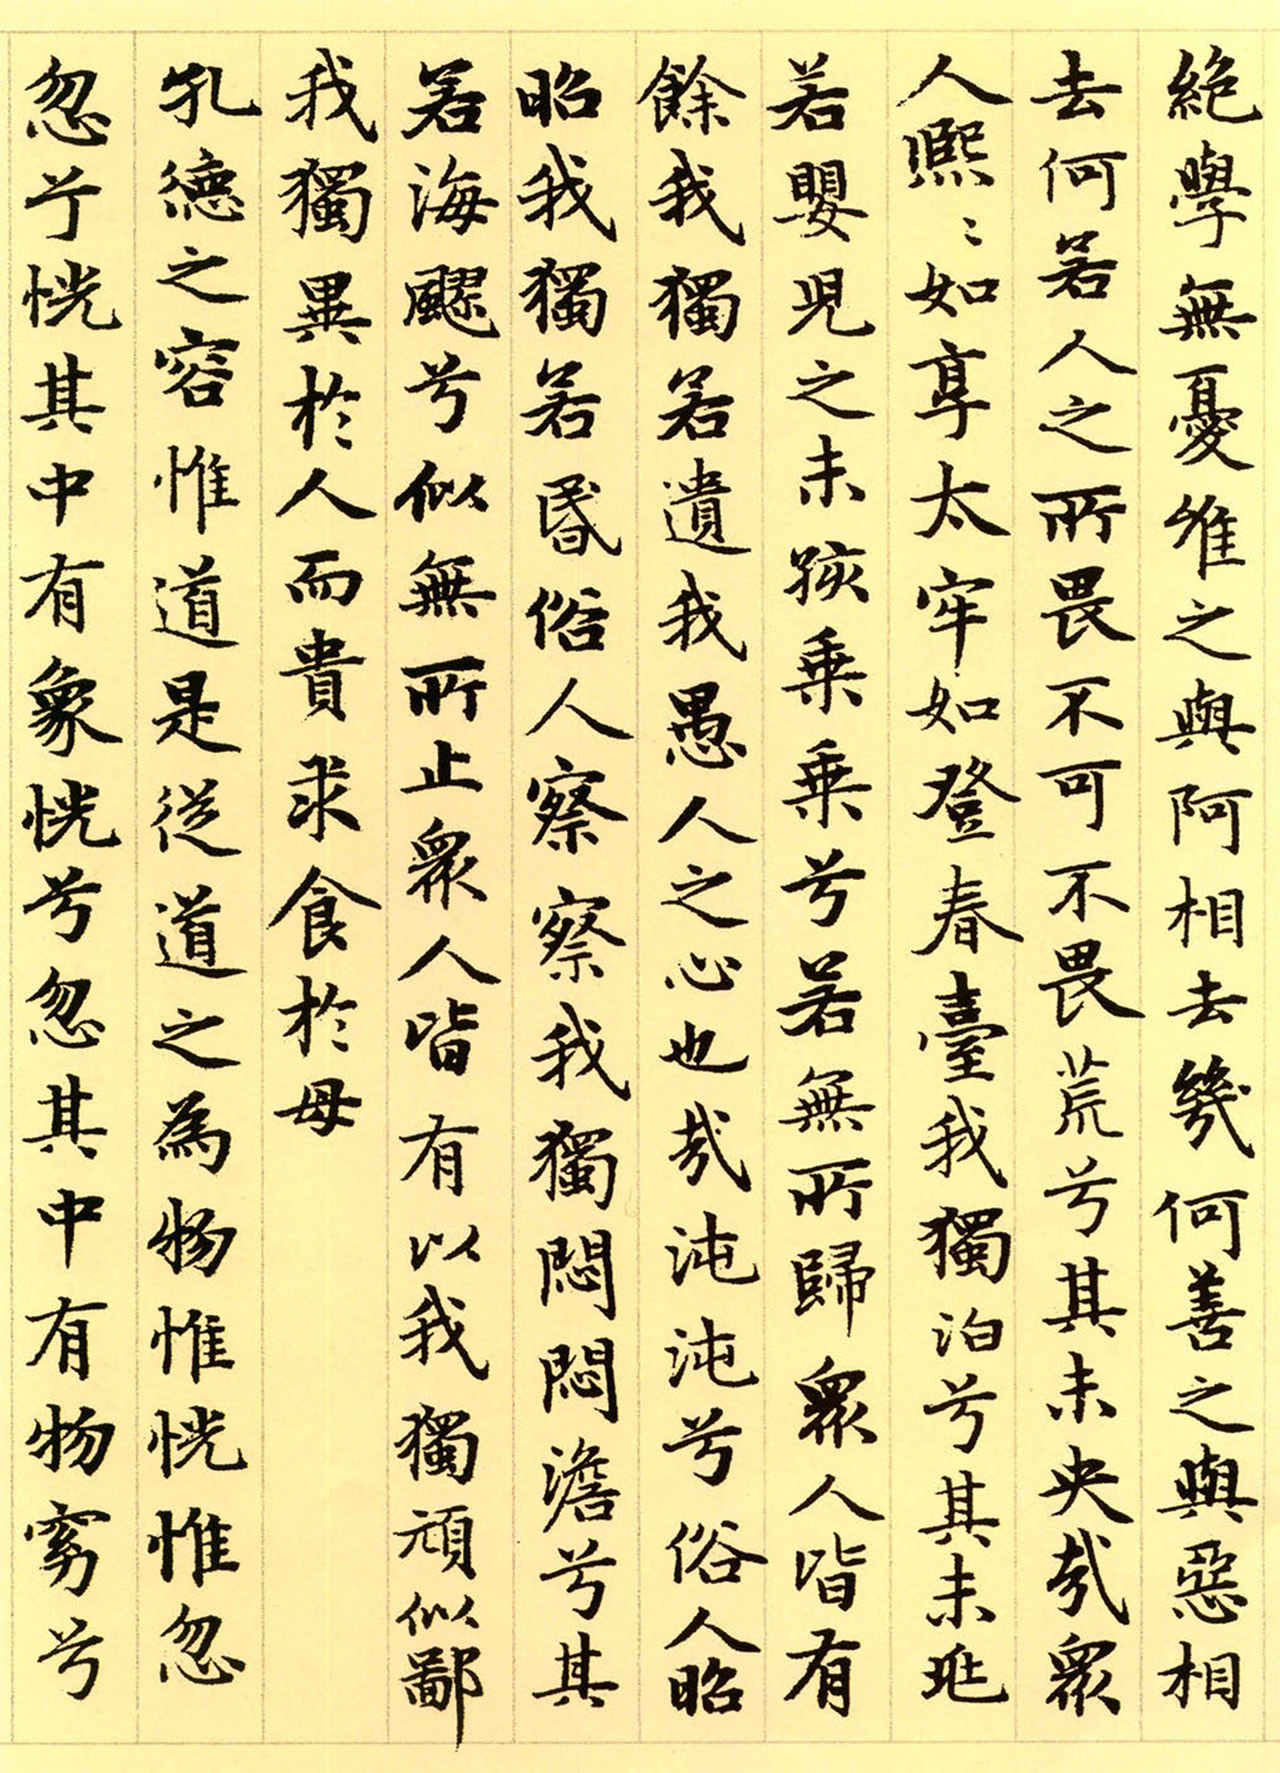 絶學無憂唯之與阿相去幾何善之與惡相
去何若人之所畏不可不畏荒兮其未央哉衆
人熙〻如享太牢如登春臺我獨泊兮其未兆
若嬰児之未孩乗乗兮若無所歸衆人皆有
餘我獨若遺我愚人之心也哉沌沌兮俗人昭
昭我獨若昬俗人察察我獨悶悶澹兮其
若海飂兮似無所止衆人皆有以我獨頑似鄙
我獨異於人而貴求食於母
孔德之容惟道是從道之為物惟恍惟忽
忽兮恍其中有象恍兮忽其中有物窈兮